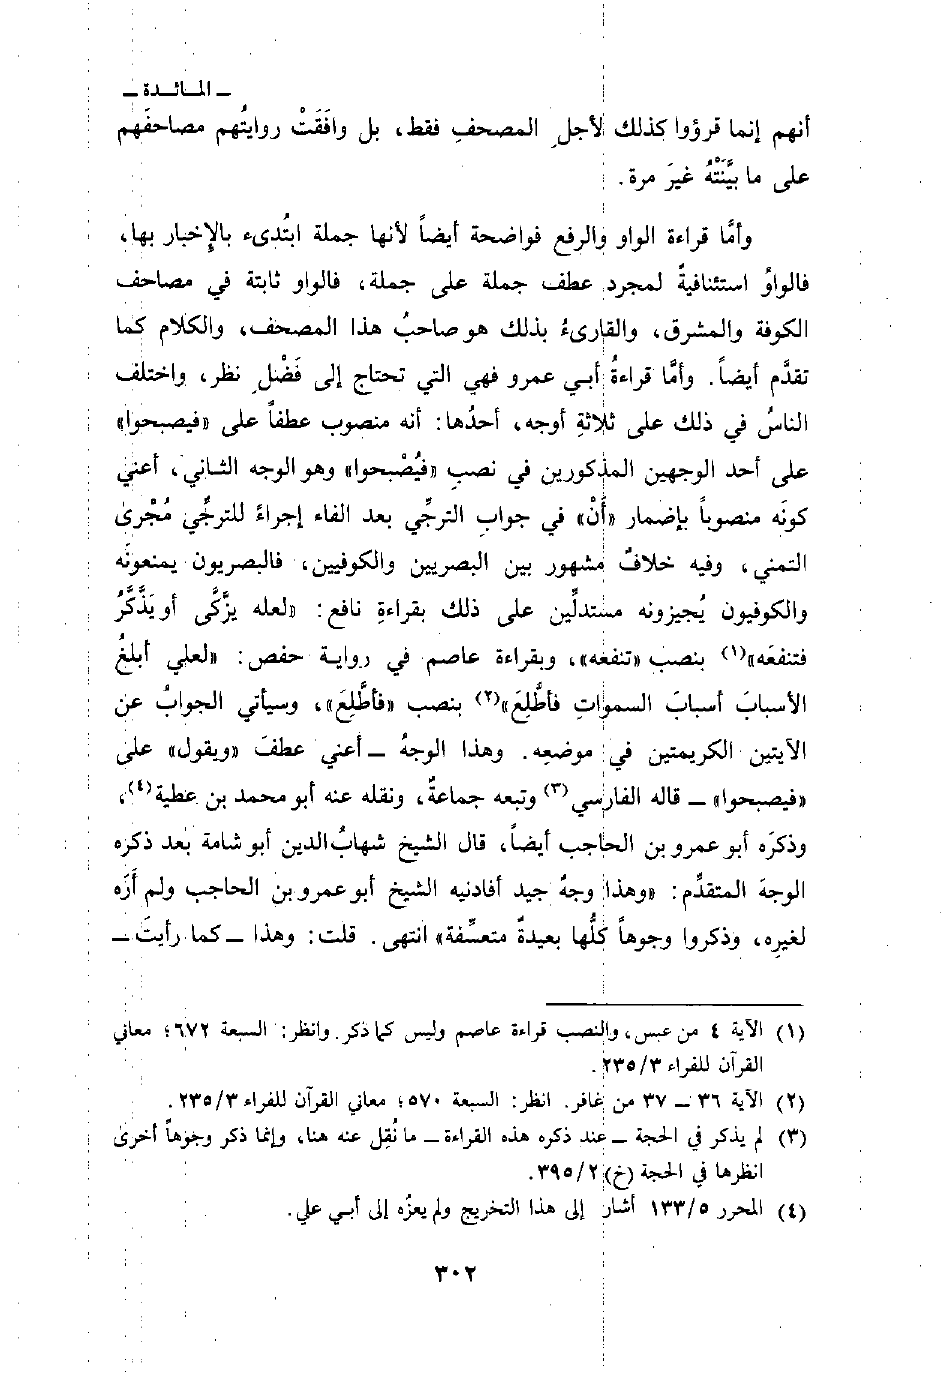 ـ المـائـدة ـ
أنهم إنما قرؤوا كذلك لأجلِ المصحفِ فقط، بل وافَقَتْ روايتُهم مصاحفَهم
على ما بيَّنَتْهُ غيرَ مرة.
وأمَّا قراءة الواو والرفع فواضحة أيضاً لأنها جملة ابتُدىء بالإِخبار بها،
فالواوُ استئنافيةٌ لمجرد عطف جملة على جملة، فالواو ثابتة في مصاحف
الكوفة والمشرق، والقارىءُ بذلك هو صاحبُ هذا المصحف، والكلام كما
تقدَّم أيضاً. وأمَّا قراءةُ أبي عمرو فهي التي تحتاج إلى فَضْلِ نظر، واختلف
الناسُ في ذلك على ثلاثةِ أوجه، أحدُها: أنه منصوب عطفاً على «فيصبحوا»
على أحد الوجهين المذكورين في نصبِ «فيُصْبحوا» وهو الوجه الثاني، أعني
كونَه منصوباً بإضمار «أَنْ» في جواب الترجِّي بعد الفاء إجراءً للترجِّي مُجْرى
التمني، وفيه خلافٌ مشهور بين البصريين والكوفيين، فالبصريون يمنعونَه
والكوفيون يُجيزونه مستدلِّين على ذلك بقراءةِ نافع: «لعله يزَّكَّى أو يَذَّكَّرُ
فتنفعَه»(١) بنصب «تنفعَه»، وبقراءة عاصم في روايـة حفص: «لعلي أبلغُ
الأسبابَ أسبابَ السمواتِ فأطَّلِعَ»(٢) بنصب «فأطَّلِعَ»، وسيأتي الجوابُ عن
الآيتين الكريمتين في موضعِه. وهذا الوجهُ ـ أعني عطفَ «ويقول» على
«فيصبحوا» ـ قاله الفارسي(٣) وتبعه جماعةٌ، ونقله عنه أبو محمد بن عطية(٤)،
وذكرَه أبو عمرو بن الحاجب أيضاً، قال الشيخ شهابُ الدين أبو شامة بعد ذكره
الوجهَ المتقدِّم: «وهذا وجهٌ جيد أفادنيه الشيخ أبو عمرو بن الحاجب ولم أَرَه
لغيرِه، وذكروا وجوهاً كلُّها بعيدةٌ متعسِّفة» انتهى. قلت: وهذا ـ كما رأيتَ ـ
(١) الآية ٤ من عبس، والنصب قراءة عاصم وليس كما ذكر. وانظر: السبعة ٦٧٢؛ معاني
القرآن للفراء ٢٣٥/٣.
(٢) الآية ٣٦ ـ ٣٧ من غافر. انظر: السبعة ٥٧٠؛ معاني القرآن للفراء ٢٣٥/٣.
(٣) لم يذكر في الحجة ـ عند ذكره هذه القراءة ـ ما نُقِل عنه هنا، وإنما ذكر وجوهاً أخرى
انظرها في الحجة (خ) ٣٩٥/٢.
(٤) المحرر ١٣٣/٥ أشار إلى هذا التخريج ولم يعزُه إلى أبـي علي.
٣٠٢